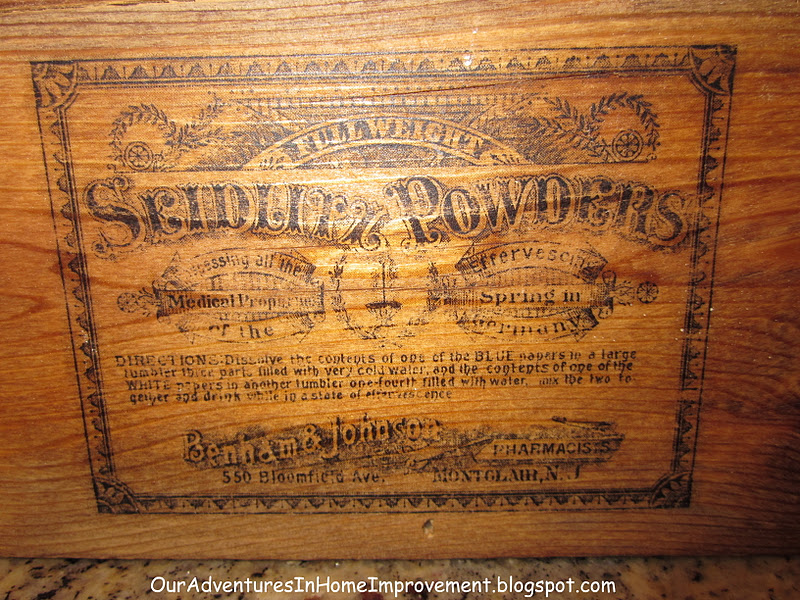 FULL WEIGHT
SEIDLITZ POWDERS
Possessing all the
Medical Properties
of the
Effervescing
Spring in
Germany
DIRECTIONS: Dissolve the contents of one of the BLUE papers in a large
tumbler three parts filled with very cold water, and the contents of one of the
WHITE papers in another tumbler one-fourth filled with water, mix the two to
gether and drink while in a state of effervescence
Benham & Johnson
PHARMACISTS
550 Bloomfield Ave.
MONTCLAIR, N. J
OurAdventuresInHomeImprovement.blogspot.com